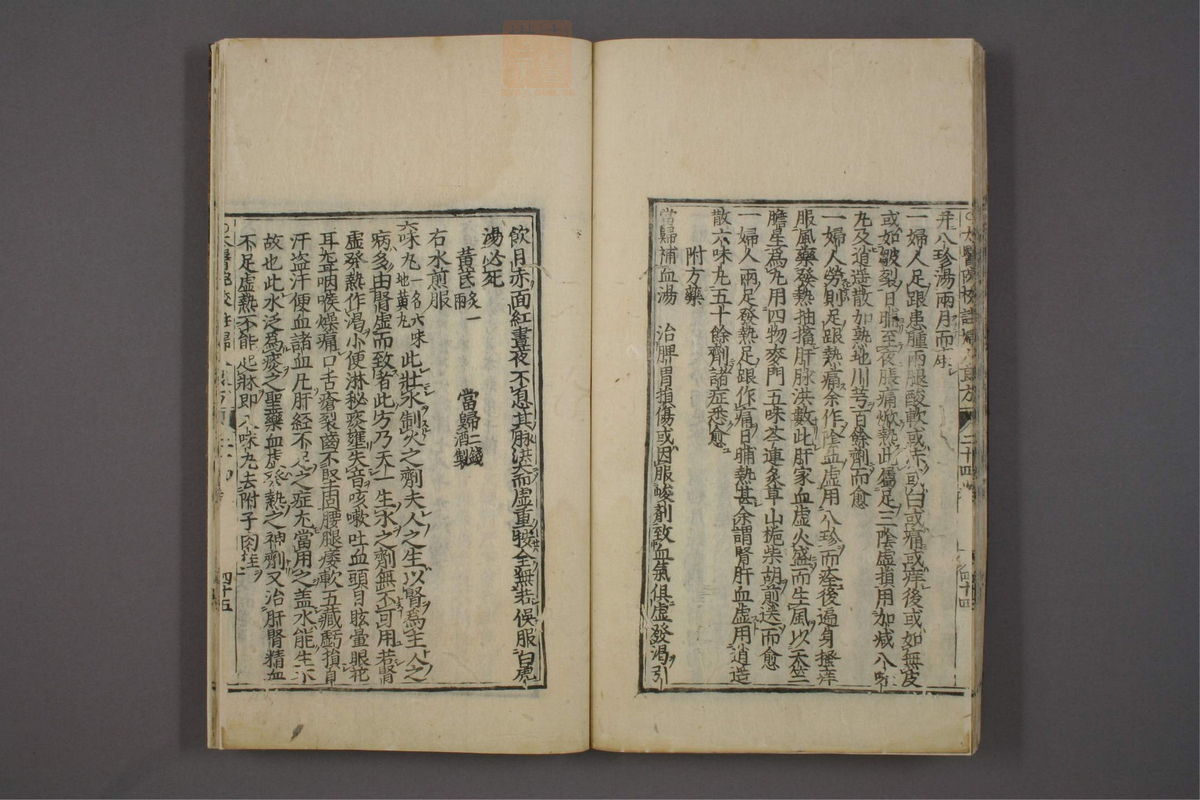 太醫院校註婦人良方 二十四 四十四
并八珍湯兩月而痊
一婦人足跟患腫兩腿酸軟或赤或白或痛或痒後或如無皮
或如皴裂日晡至夜脹痛焮熱此屬足三陰虛損用加减八味
丸及逍遥散加熟地川芎百餘劑而愈
一婦人勞則足跟熱痛余作陰血虛用八珍而痊後遍身搔痒
服風藥發熱抽搐肝脉洪數此肝家血虛火盛而生風以天竺
膽星爲丸用四物麥門五味芩連炙草山梔柴胡煎送而愈
一婦人兩足發熱足跟作痛日晡熱甚余謂腎肝血虛用逍遥
散六味丸五十餘劑諸症悉愈
附方藥
當歸補血湯 治脾胃損傷或因服峻劑致血氣俱虛發渴引
飲目赤面紅晝夜不息其脉洪大而虛重按全無若悞服白虎
湯必死
黄芪炙一兩 當歸二錢酒製
右水煎服
六味丸一名六味地黄丸 此壯水制火之劑夫人之生以腎爲主人之
病多由腎虛而致者此方乃天一生水之劑無不可用若腎
虛發熱作渴小便淋秘痰壅失音咳嗽吐血頭目眩暈眼花
耳聾咽喉燥痛口舌瘡裂齒不堅固腰腿痿軟五藏虧損自
汗盗汗便血諸血凡肝経不足之症尤當用之盖水能生木
故也此水泛爲痰之聖藥血虛發熱之神劑又治肝腎精血
不足虛熱不能起牀即八味丸去附子肉桂
二十四 四十五